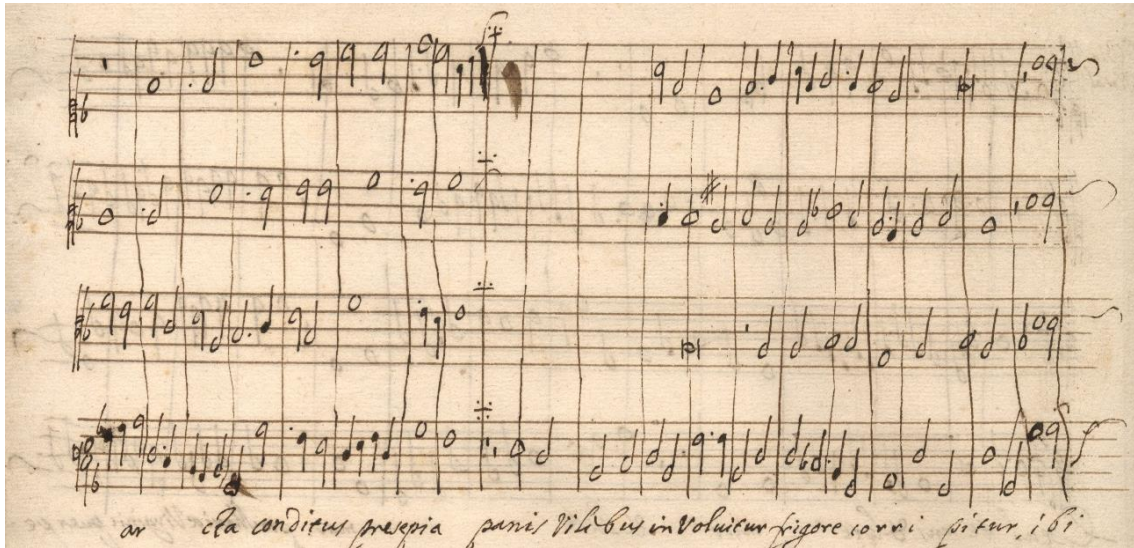 ar cta conditus presepia panis Vilibus in Voluitur frigore corri pitur, ibi